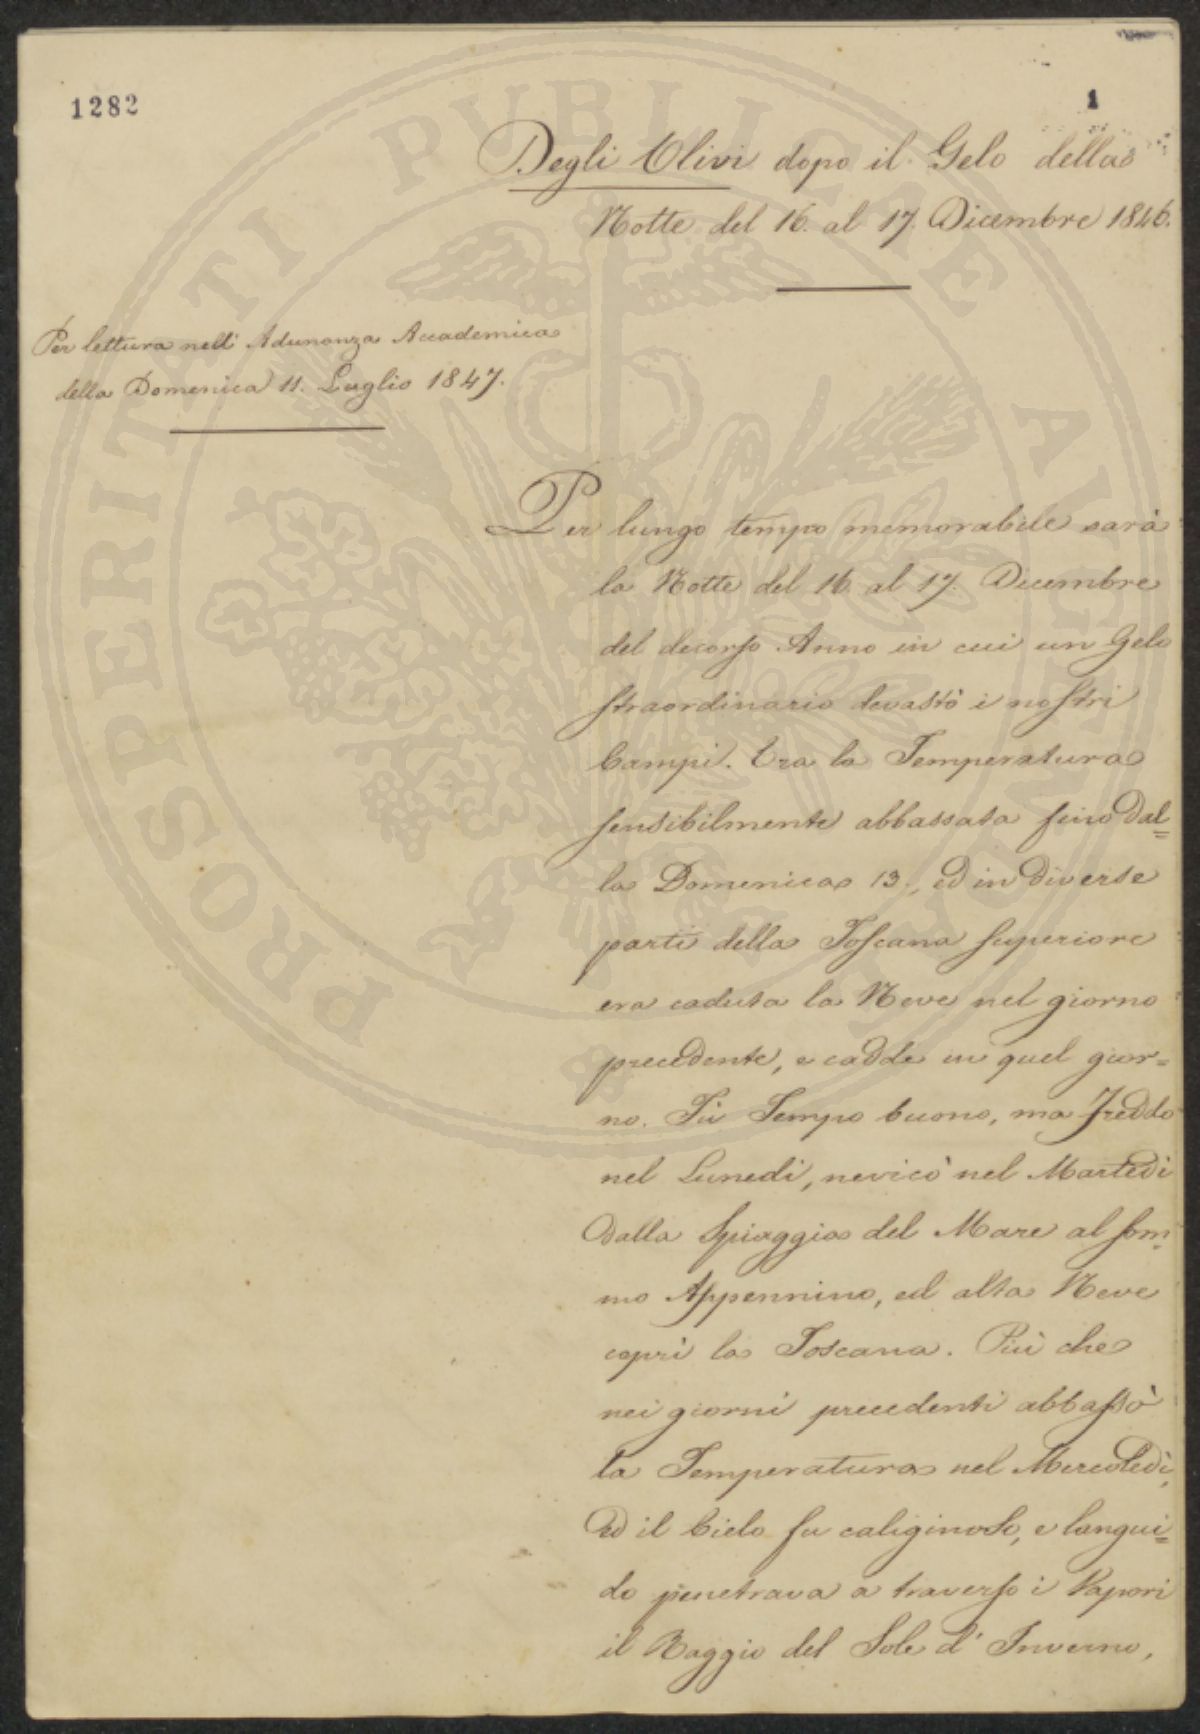 1282
1
Degli Olivi dopo il Gelo della
Notte del 16. al 17. Dicembre 1846.
Per lettura nell' Adunanza Accademica
della Domenica 11. Luglio 1847.
Per lungo tempo memorabile sarà
la Notte del 16 al 17. Dicembre
del decorso Anno in cui un Gelo
straordinario devastò i nostri
Campi. Era la Temperatura
sensibilmente abbassata fino dal=
la Domenica 13., ed in diverse
parti della Toscana superiore
era caduta la Neve nel giorno
precedente, e cadde in quel gior=
no. Fù Tempo buono, ma freddo
nel Lunedì, nevicò nel Martedì
dalla Spiaggia del Mare al som=
mo Appennino, ed alta Neve
coprì la Toscana. Più che
nei giorni precedenti abbassò
la Temperatura nel Mercoledì,
ed il Cielo fu caliginoso, e langui=
do penetrava a traverso i Vapori
il Raggio del Sole d' Inverno,
PROSPERITATI PUBLICAE AUGENDAE